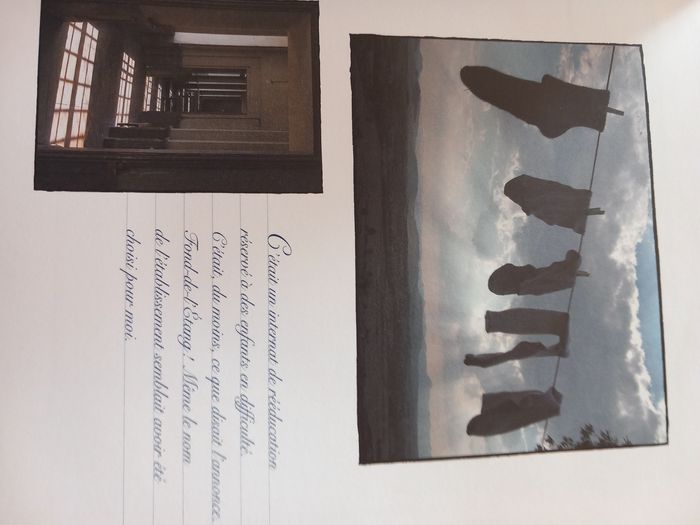 C'était un internat de rééducation
réservé à des enfants en difficulté.
C'était, du moins, ce que disait l'annonce.
Fond-de-l'Étang ! Même le nom
de l'établissement semblait avoir été
choisi pour moi.